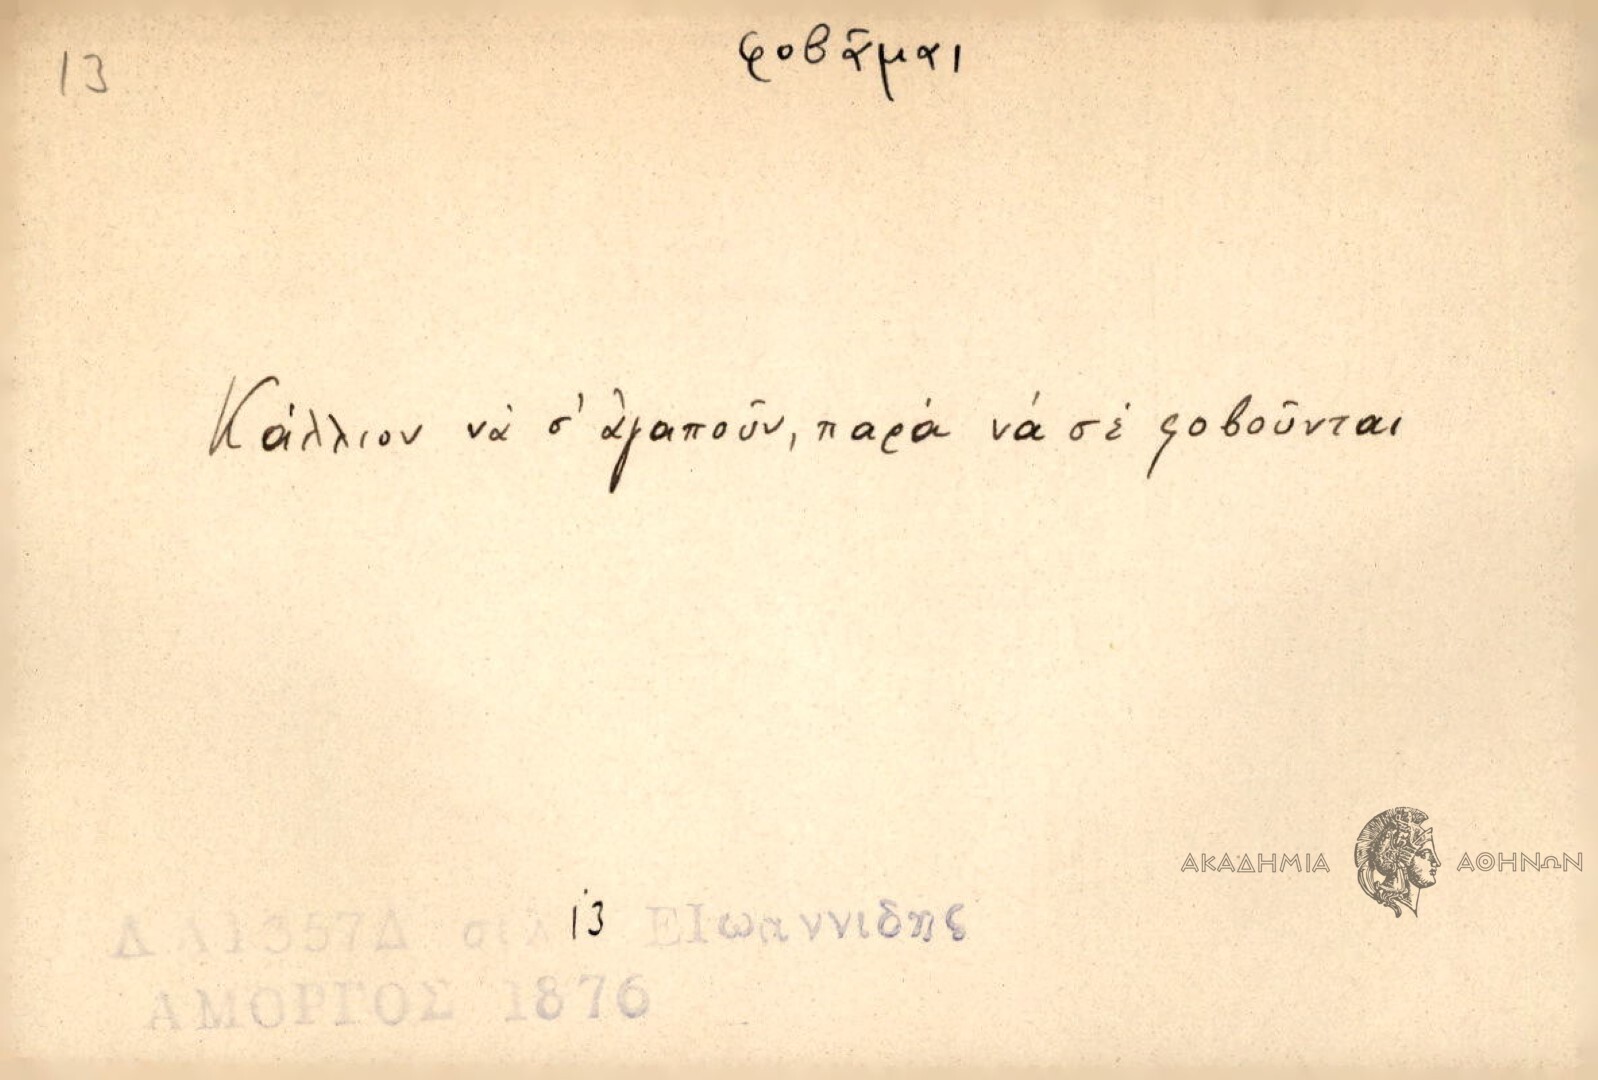 13
φοβᾶμαι
Κάλλιον νὰ σ' ἀγαποῦν, παρά νά σέ φοβοῦνται
ΑΚΑΔΗΜΙΑ ΑΘΗΝΩΝ
1357Δ σελ 13 ΕΙωαννιδης
ΑΜΟΡΓΟΣ 1876